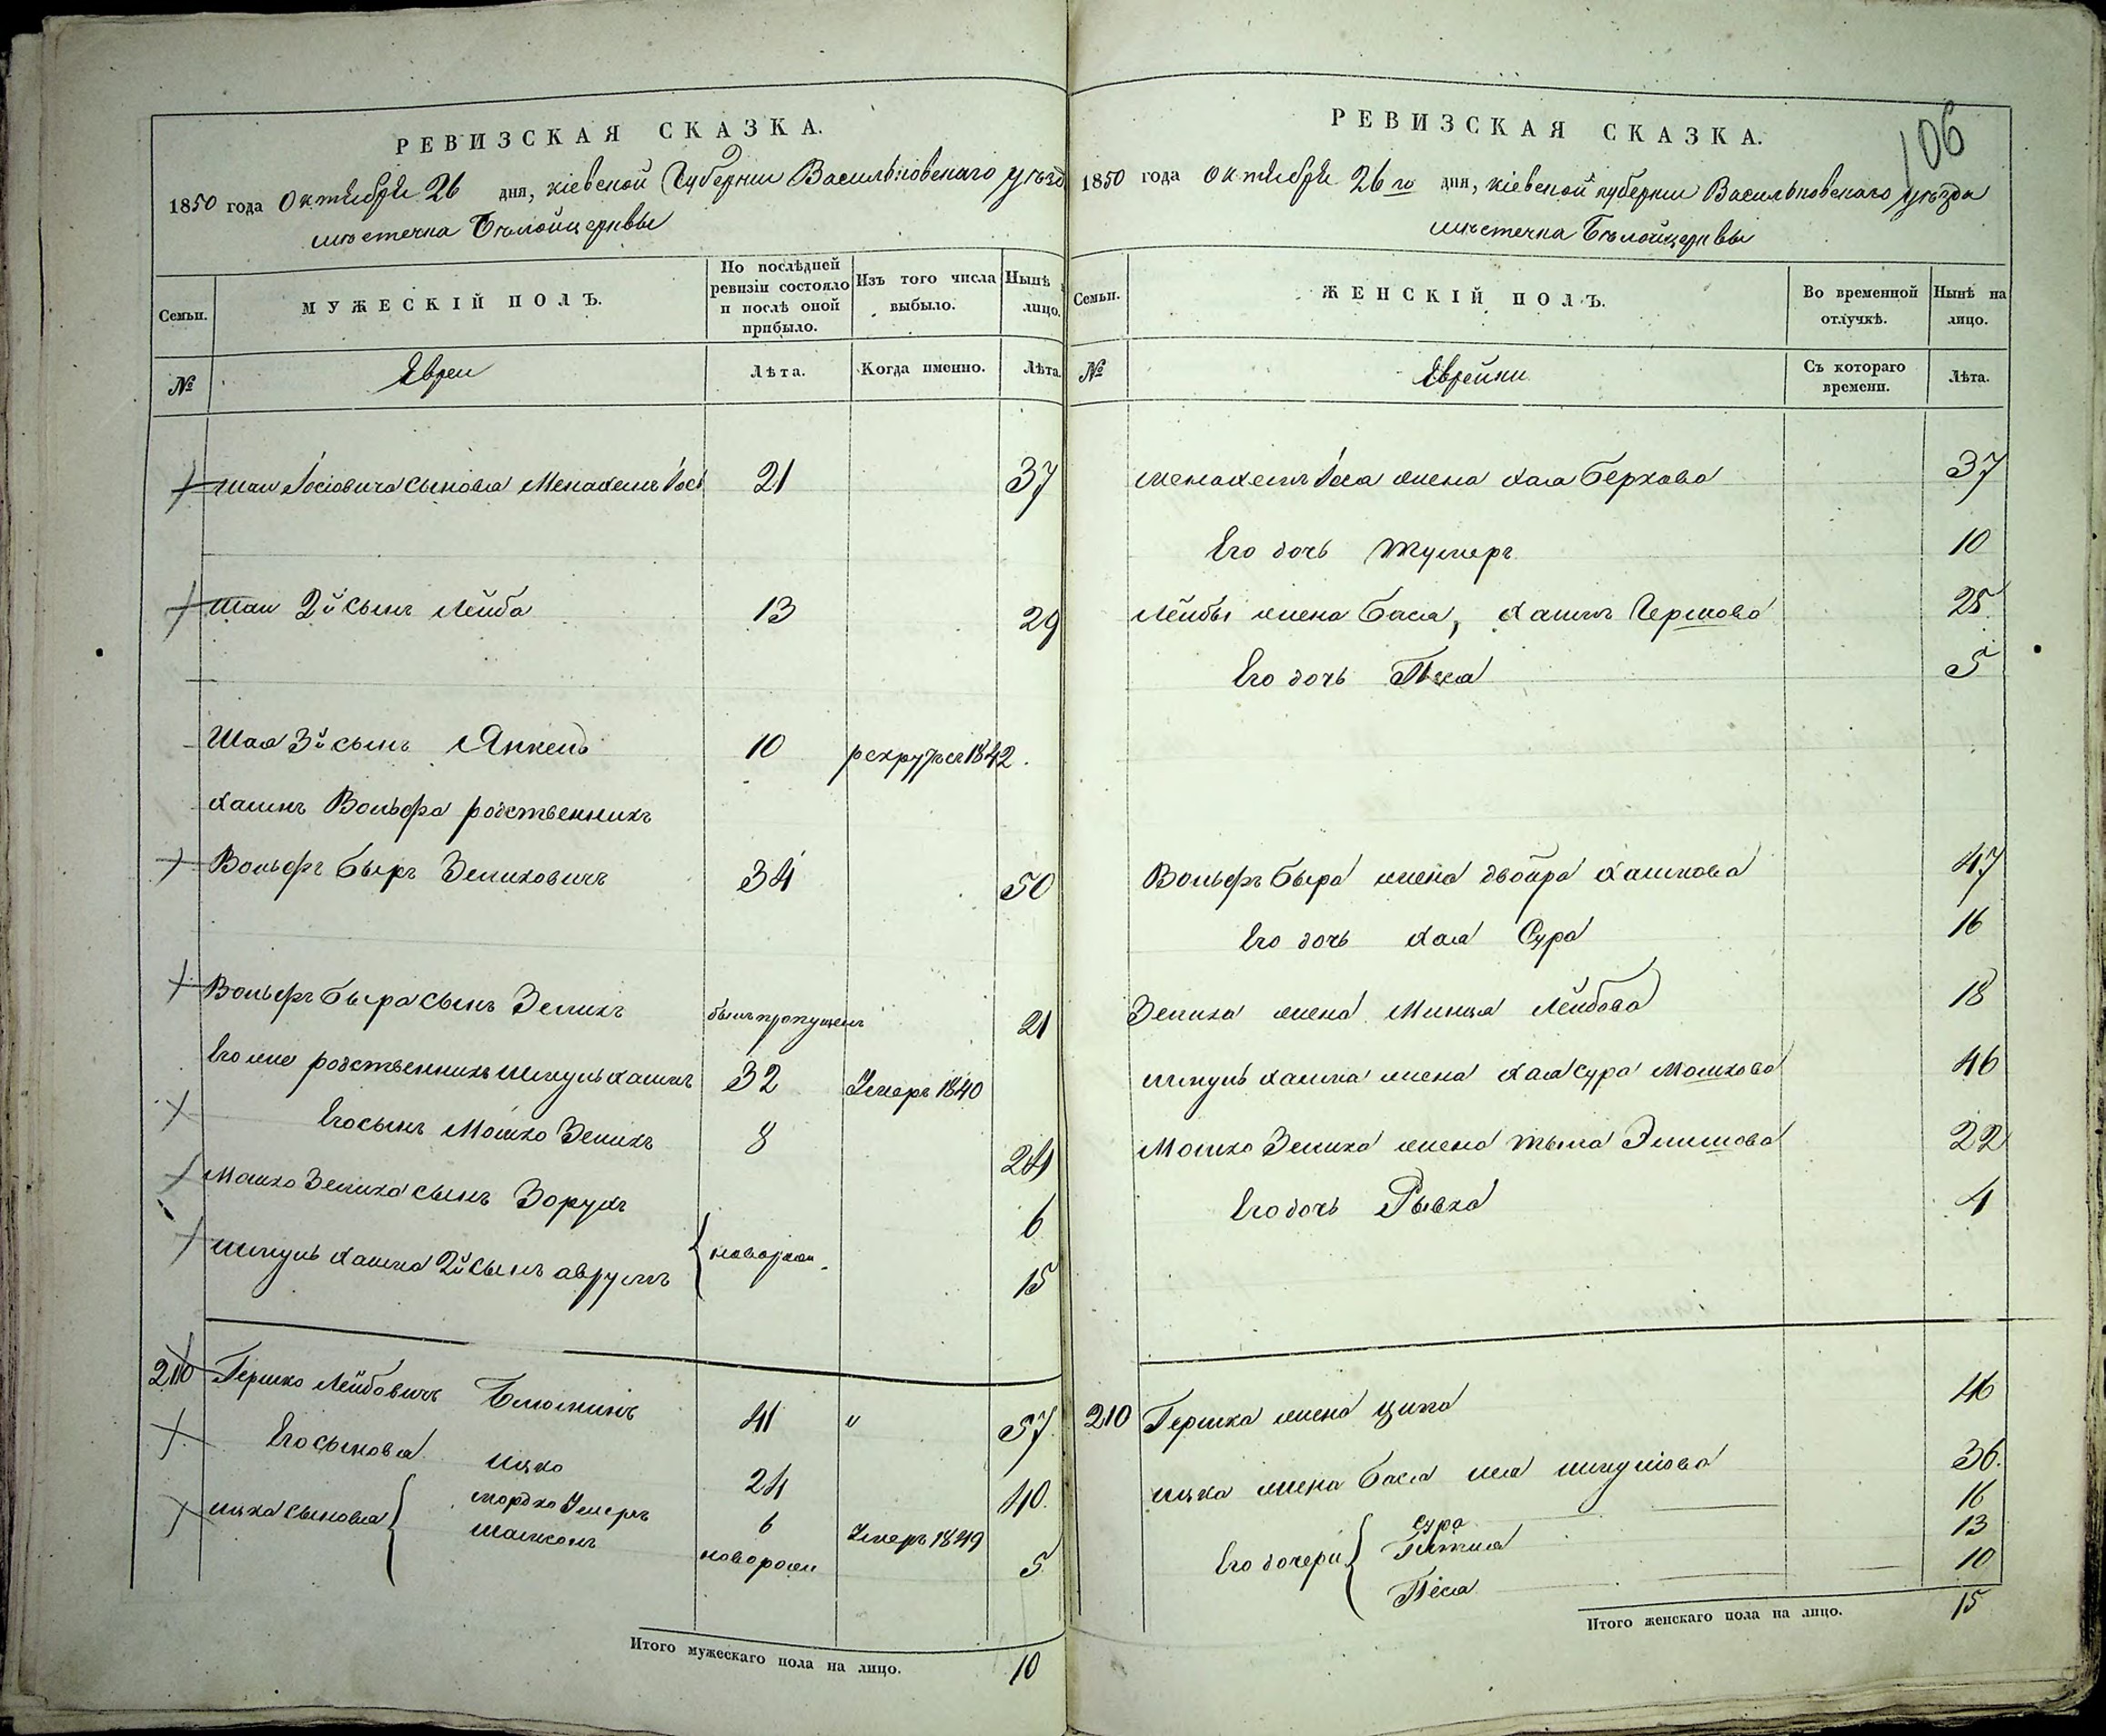 РЕВИЗСКАЯ СКАЗКА.
1850 года Октября 26 дня, Кіевской Губерніи Васильковскаго уѣзд
мѣстечка Бѣлойцеркви
Семьи.
МУЖЕСКІЙ ПОЛЪ.
По послѣдней ревизіи состояло и послѣ оной прибыло.
Изъ того числа выбыло.
Нынѣ лицо.
№
Евреи
Лѣта.
Когда именно.
Лѣта.
Шаи Іосіовича сыновья Менахемъ Іось 21 37
Шаи 2й сынъ Лейба 13 29
Шая 3й сынъ Янкель 10 рекрутъ 1842
Хаимъ Вольфа родственникъ
Вольфъ Бѣръ Зелиховичъ 34 50
Вольфъ Бера сынъ Зелихъ былъ пропущенъ 21
Его же родственникъ Шмуль Хаимъ 32 Умеръ 1840
Его сынъ Мошко Зелихъ 8 24
Мошко Зелиха сынъ Зорухъ 6
Шмуль Хаима 2й сынъ Аврумъ новорож. 15
210 Гершко Лейбовичъ 41 " 57
Его сыновья Ицко 24 40
Ицка сыновья Мордко Умеръ 6 Умеръ 1849
Шамсонъ новорож 5
Итого мужескаго пола на лицо. 10
106
РЕВИЗСКАЯ СКАЗКА.
1850 года Октября 26го дня, Кіевской губерніи Васильковскаго уѣзда
мѣстечка Бѣлойцеркви
Семьи.
ЖЕНСКІЙ ПОЛЪ.
Во временной отлучкѣ.
Нынѣ на лицо.
№
Еврейки
Съ котораго времени.
Лѣта.
Менахемъ Іося жена Хая Беркова 37
Его дочь 10
Лейбы жена Бася, Хаимъ Гершкова 25
Его дочь Песя 5
Вольфъ Бера жена Двойра Хаимова 47
Его дочь Хая Сура 16
Зелиха жена Минця Лейбова 18
Шмуль Хаима жена Хая Сура Мошкова 46
Мошко Зелиха жена 22
Его дочь Рывка 4
210 Гершка жена Ципа 46
Ицка жена Бася Лея Шмулева 36
Его дочери Сура 16
13
Песя 10
Итого женскаго пола на лицо. 15